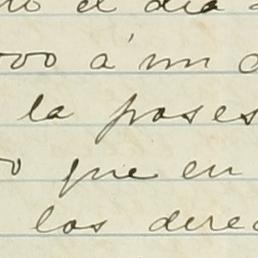 el dia
á un
la poses
que en
los derec